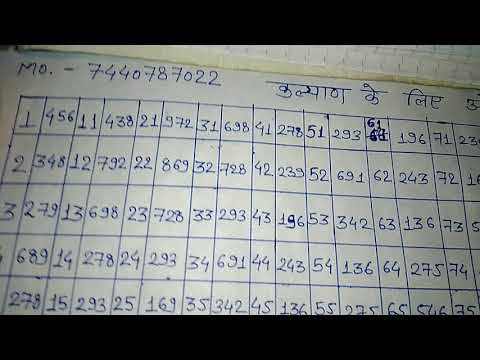 Mo. - 7440787022 कल्याण के लिए
1 456 11 438 21 972 31 698 41 278 51 293 61 196 71
2 348 12 792 22 869 32 728 42 239 52 691 62 243 72
3 279 13 698 23 728 33 293 43 196 53 342 63 136 73
689 14 278 24 293 34 691 44 243 54 136 64 275 74
278 15 293 25 169 35 342 45 136 55 275 65 546 75